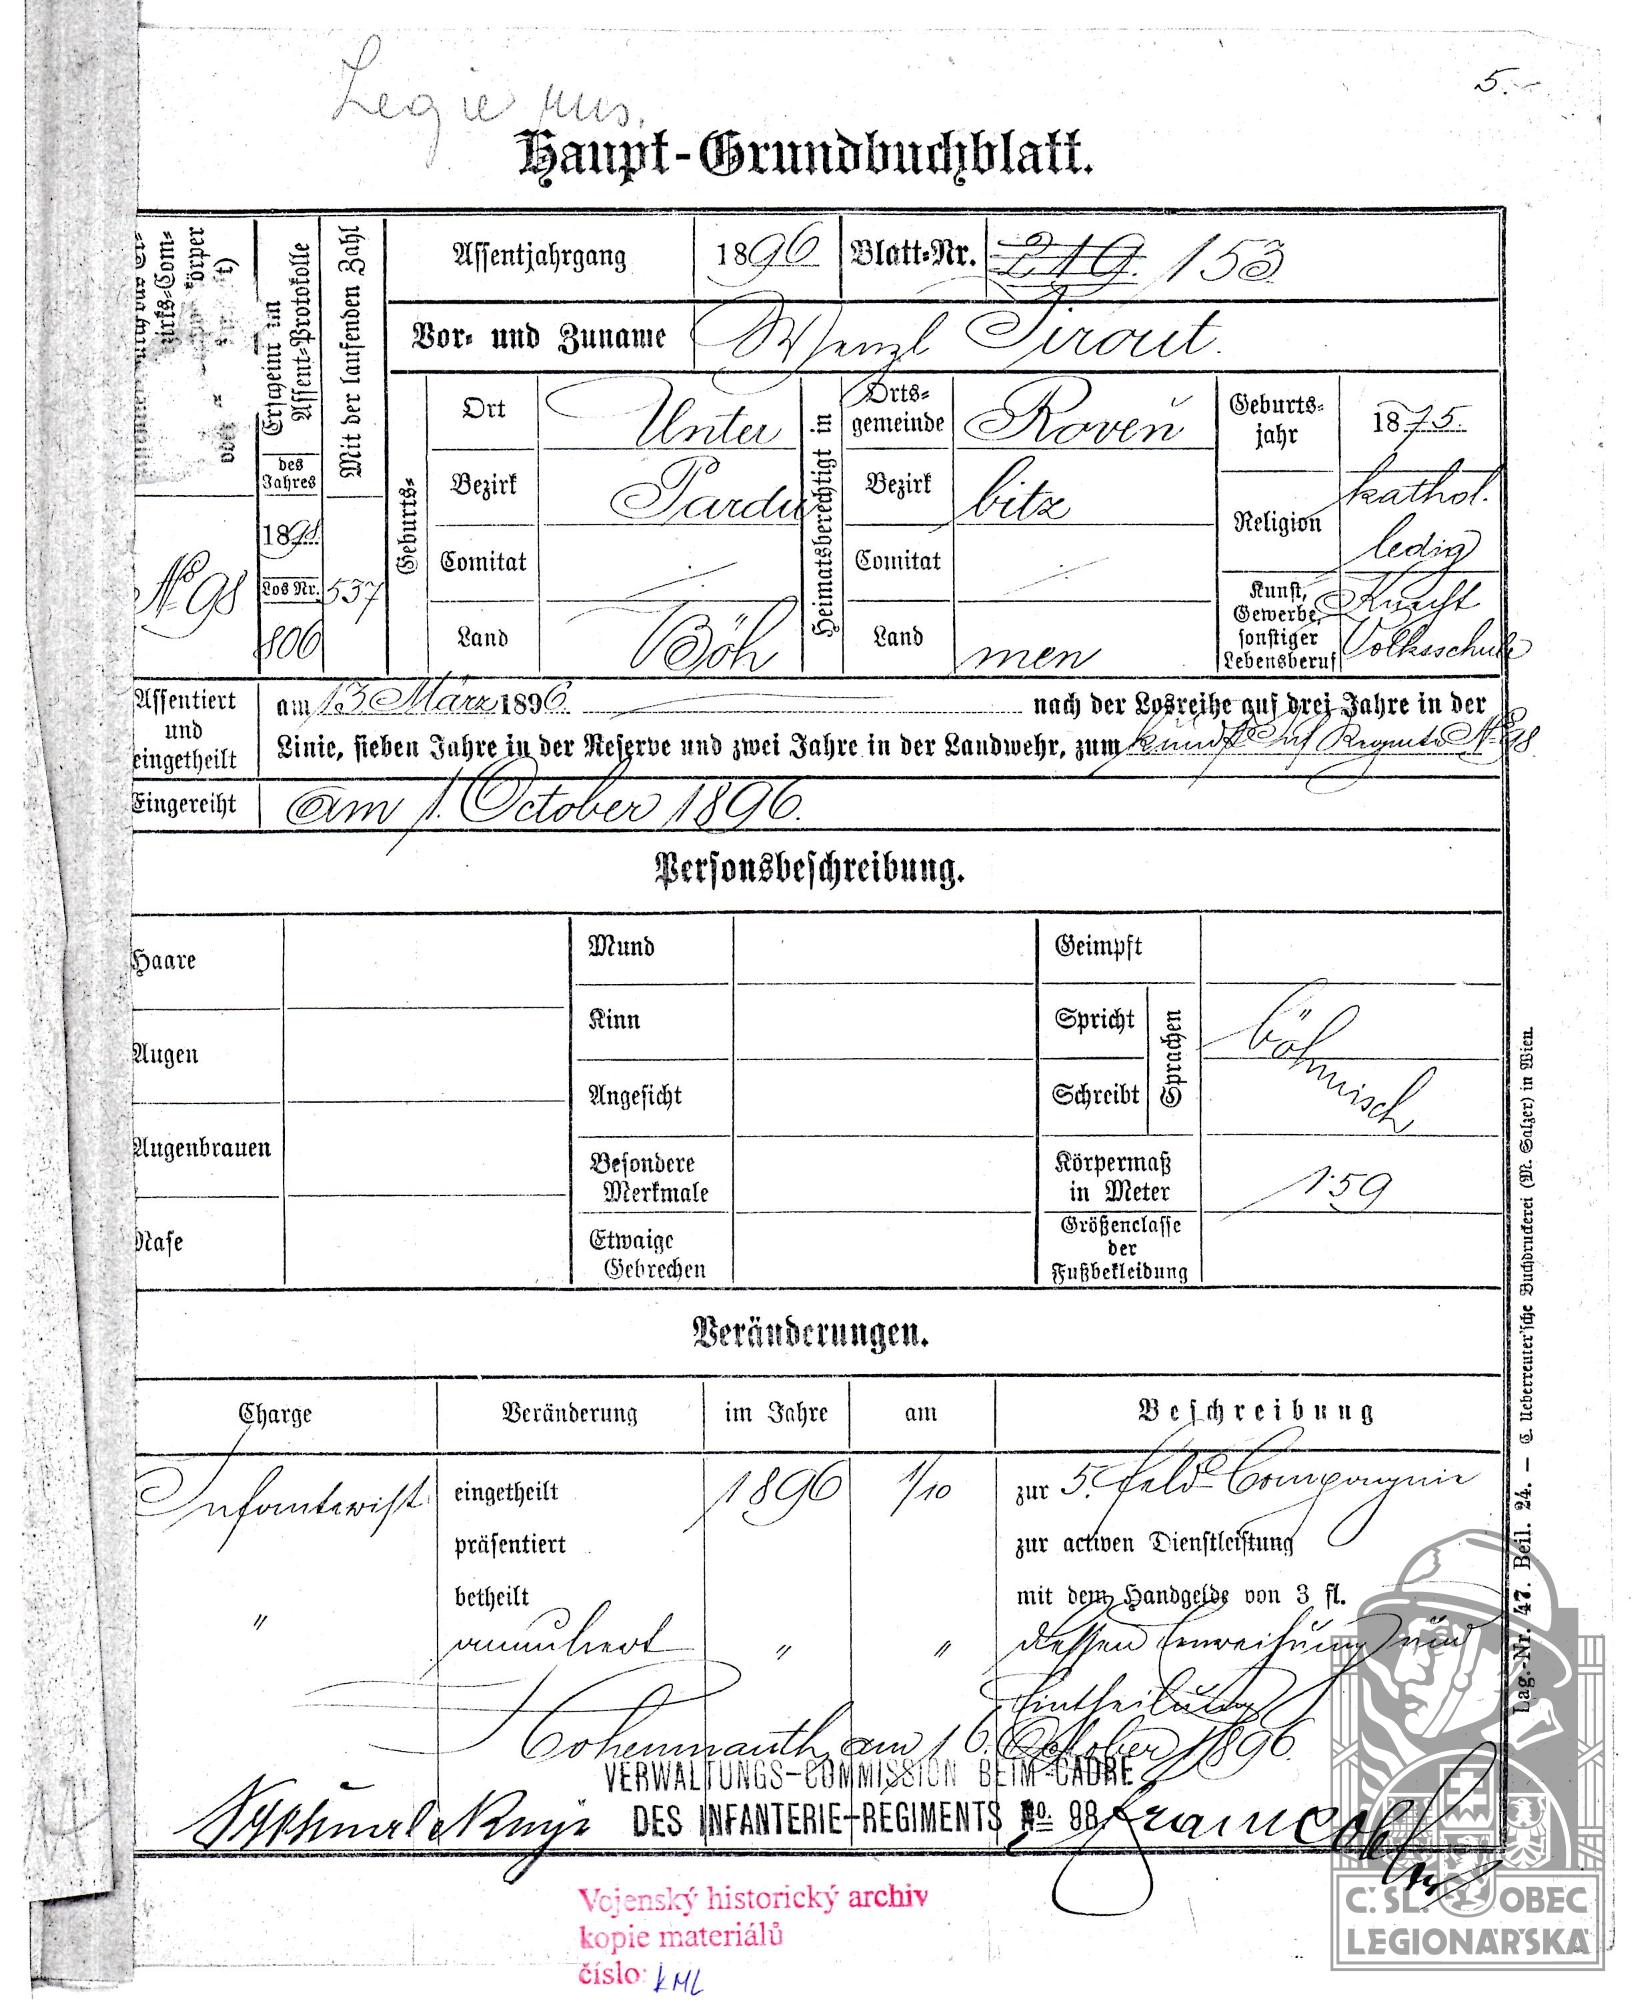 Legie rus.
5.-
Haupt-Grundbuchblatt.
Erscheint im Assent-Protokolle
des Jahres
1898
Los Nr.
806
Mit der laufenden Zahl
537
№ 98
Assentjahrgang 1896 Blatt-Nr. 219. 153
Vor- und Zuname Wenzl Tirout.
Geburts-
Ort Unter
Bezirk Pardu
Comitat
Land Böh
Heimatsberechtigt in
Orts-gemeinde Roveň
Bezirk bitz
Comitat
Land men
Geburts-jahr 1875.
Religion kathol.
ledig
Kunst, Gewerbe, sonstiger Lebensberuf Knecht
Volksschule
Assentiert und eingetheilt
am 13. März 1896. nach der Losreihe auf drei Jahre in der
Linie, sieben Jahre in der Reserve und zwei Jahre in der Landwehr, zum k.und k. Inf Regmte № 98.
Eingereiht am 1. October 1896.
Personsbeschreibung.
Haare
Augen
Augenbrauen
Nase
Mund
Kinn
Angesicht
Besondere Merkmale
Etwaige Gebrechen
Geimpft
Spricht
Schreibt
Sprachen
böhmisch
Körpermaß in Meter 1·59
Größenclasse der Fußbekleidung
Veränderungen.
Charge Veränderung im Jahre am Beschreibung
Infanterist eingetheilt 1896 1/10 zur 5. Feld-Compagnie
präsentiert zur activen Dienstleistung
betheilt mit dem Handgelde von 3 fl.
" annuliert " " dessen Einreihung und
Eintheilung
Hohenmauth, am 16. October 1896.
VERWALTUNGS-COMMISSION BEIM CADRE
DES INFANTERIE-REGIMENTS No. 98.
Lag.-Nr. 47. Beil. 24. — C. Ueberreuter'sche Buchdruckerei (M. Salzer) in Wien.
Vojenský historický archiv
kopie materiálů
číslo: KML
Č.SL. OBEC
LEGIONÁŘSKÁ